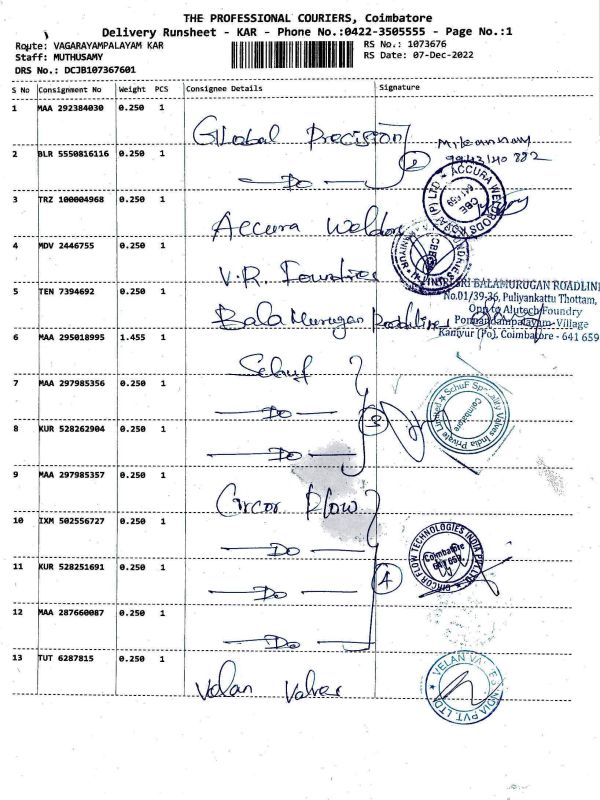 THE PROFESSIONAL COURIERS, Coimbatore
Delivery Runsheet - KAR - Phone No.:0422-3505555 - Page No.:1
Route: VAGARAYAMPALAYAM KAR
Staff: MUTHUSAMY
DRS No.: DCJB107367601
RS No.: 1073676
RS Date: 07-Dec-2022
S No Consignment No Weight PCS Consignee Details Signature
1 MAA 292384030 0.250 1 Global Precision
2 BLR 5550816116 0.250 1 Do 2
3 TRZ 100004968 0.250 1 Accura Weldrods
4 MDV 2446755 0.250 1 V.R. Foundries
5 TEN 7394692 0.250 1 Bala Murugan Roadlines
SRI BALAMURUGAN ROADLIN
No.01/39-36, Puliyankattu Thottam,
Opp to Alutech Foundry
Ponnandampalayam-Village
Kaniyur (Po), Coimbatore - 641 659
6 MAA 295018995 1.455 1
7 MAA 297985356 0.250 1 Do
8 KUR 528262904 0.250 1 Do 3
SchuF Speciality Valves India Private Limited
Coimbatore
9 MAA 297985357 0.250 1 Circor Flow
10 IXM 502556727 0.250 1 Do
11 KUR 528251691 0.250 1 Do 4
CIRCOR FLOW TECHNOLOGIES INDIA PVT LTD
Coimbatore
12 MAA 287660087 0.250 1 Do
13 TUT 6287815 0.250 1 Velan Valves
VELAN VALVES INDIA PVT. LTD.
ACCURA WELDRODS KOVAI (P) LTD
CBE
641 659